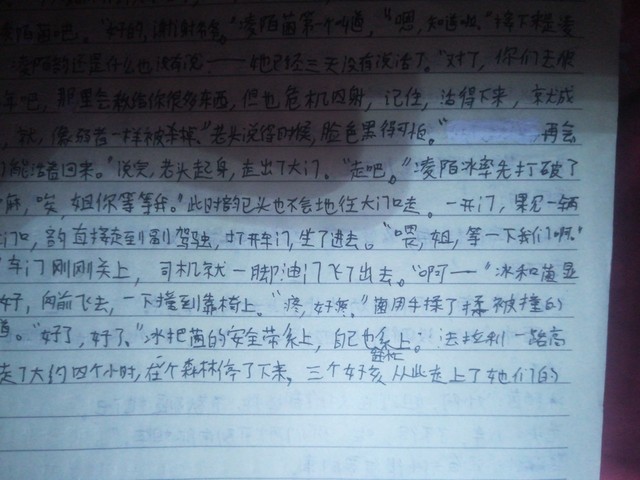 凌陌茵吧。”“好的,谢谢爷爷。”凌陌茵第一个叫道,“嗯,知道啦。”接下来是凌
凌陌韵还是什么也没有说——她已经三天没有说话了。“对了,你们去做
年吧,那里会教给你很多东西,但也危机四射,记住,活得下来,就成
,就,像弱者一样被杀掉。”老头说得时候,脸色黑得可怕。 再会
们能活着回来。”说完,老头起身,走出了大门。“走吧。”凌陌冰率先打破了
麻,唉,姐你等等我。”此时韵已头也不会地往大门口走。一开门,果见一辆
门口,韵直接走到副驾驶,打开车门,坐了进去。“喂,姐,等一下我们啊。”
车门刚刚关上,司机就一脚油门飞了出去。“啊——”冰和茵显
好,向前飞去,一下撞到靠椅上。“疼,好疼。”茵用手揉了揉被撞的
道。“好了,好了。”冰把茵的安全带系上,自己也系上。法拉利一路高
走了大约四个小时,在个森林停了下来,三个女孩从此走上了她们的